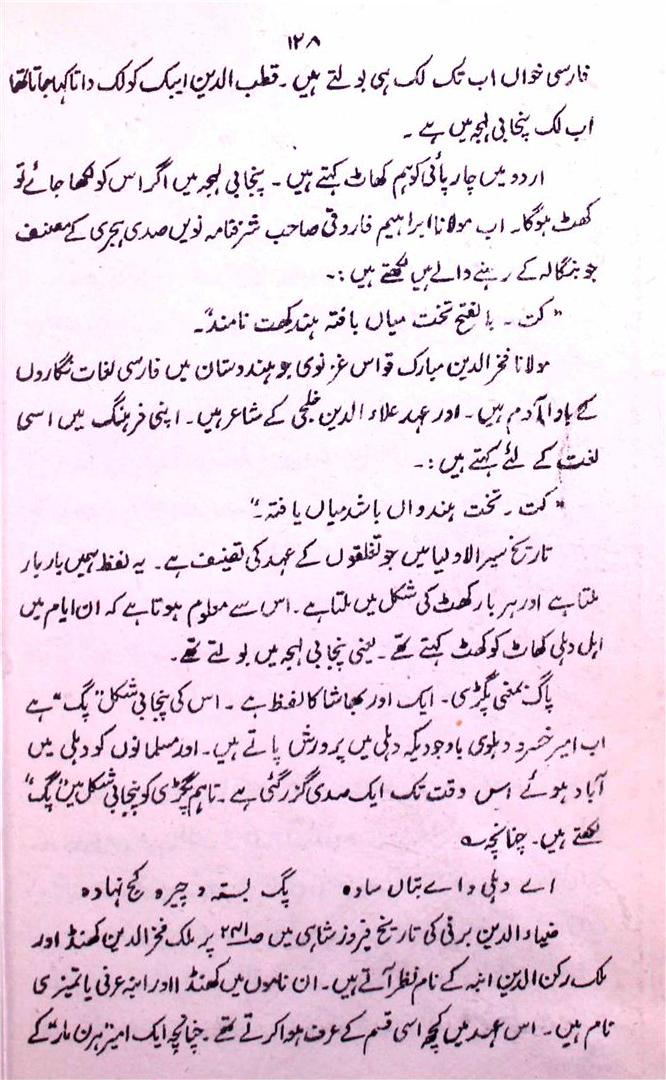 ۱۲۸
فارسی خواں اب تک لک ہی بولتے ہیں ۔ قطب الدین ایبک کو لک داتا کہا جاتا تھا
اب لک پنجابی لہجہ میں ہے ۔
اردو میں چارپائی کو ہم کھاٹ کہتے ہیں ۔ پنجابی لہجہ میں اگر اس کو لکھا جائے تو
کھٹ ہوگا۔ اب مولانا ابراہیم فاروقی صاحب شرفنامہ نویں صدی ہجری کے مصنف
جو بنگالہ کے رہنے والے ہیں لکھتے ہیں :۔
” کت ۔ بالفتح تخت میاں بافتہ ہند کھت نامند“۔
مولانا فخر الدین مبارک قواس غزنوی جو ہندوستان میں فارسی لغات نگاروں
کے باوا آدم ہیں ۔ اور عہد علاء الدین خلجی کے شاعر ہیں۔ اپنی فرہنگ میں اسی
لغت کے لئے کہتے ہیں :۔
” کت ۔ تخت ہندواں باشد میاں یافتہ ۔“
تاریخ سیر الاولیا میں جو تغلقوں کے عہد کی تصنیف ہے ۔ یہ لفظ ہمیں بار بار
ملتا ہے اور ہر بار کھٹ کی شکل میں ملتا ہے ۔ اس سے معلوم ہوتا ہے کہ ان ایام میں
اہل دہلی کھاٹ کو کھٹ کہتے تھے ۔ یعنی پنجابی لہجہ میں بولتے تھے۔
پاگ بمعنی پگڑی ۔ ایک اور بھاشا کا لفظ ہے ۔ اس کی پنجابی شکل ”پگ“ ہے
اب امیر خسرو دہلوی باوجودیکہ دہلی میں پرورش پاتے ہیں ۔ اور مسلمانوں کو دہلی میں
آباد ہوئے اس وقت تک ایک صدی گزر گئی ہے ۔ تاہم پگڑی کو پنجابی شکل میں ”پگ“
لکھتے ہیں ۔ چنانچہ ؎
اے دہلی و اے بتاں سادہ پگ بستہ و چیرہ کج نہادہ
ضیاء الدین برنی کی تاریخ فیروز شاہی میں صـ۲۴۱ پر ملک فخر الدین کھنڈ اور
ملک رکن الدین انبہ کے نام نظر آتے ہیں ۔ ان ناموں میں کھنڈ ا اور انبہ عرفی یا تمیزی
نام ہیں ۔ اس عہد میں کچھ اسی قسم کے عرف ہوا کرتے تھے ۔ چنانچہ ایک امیر ہرن مار کے